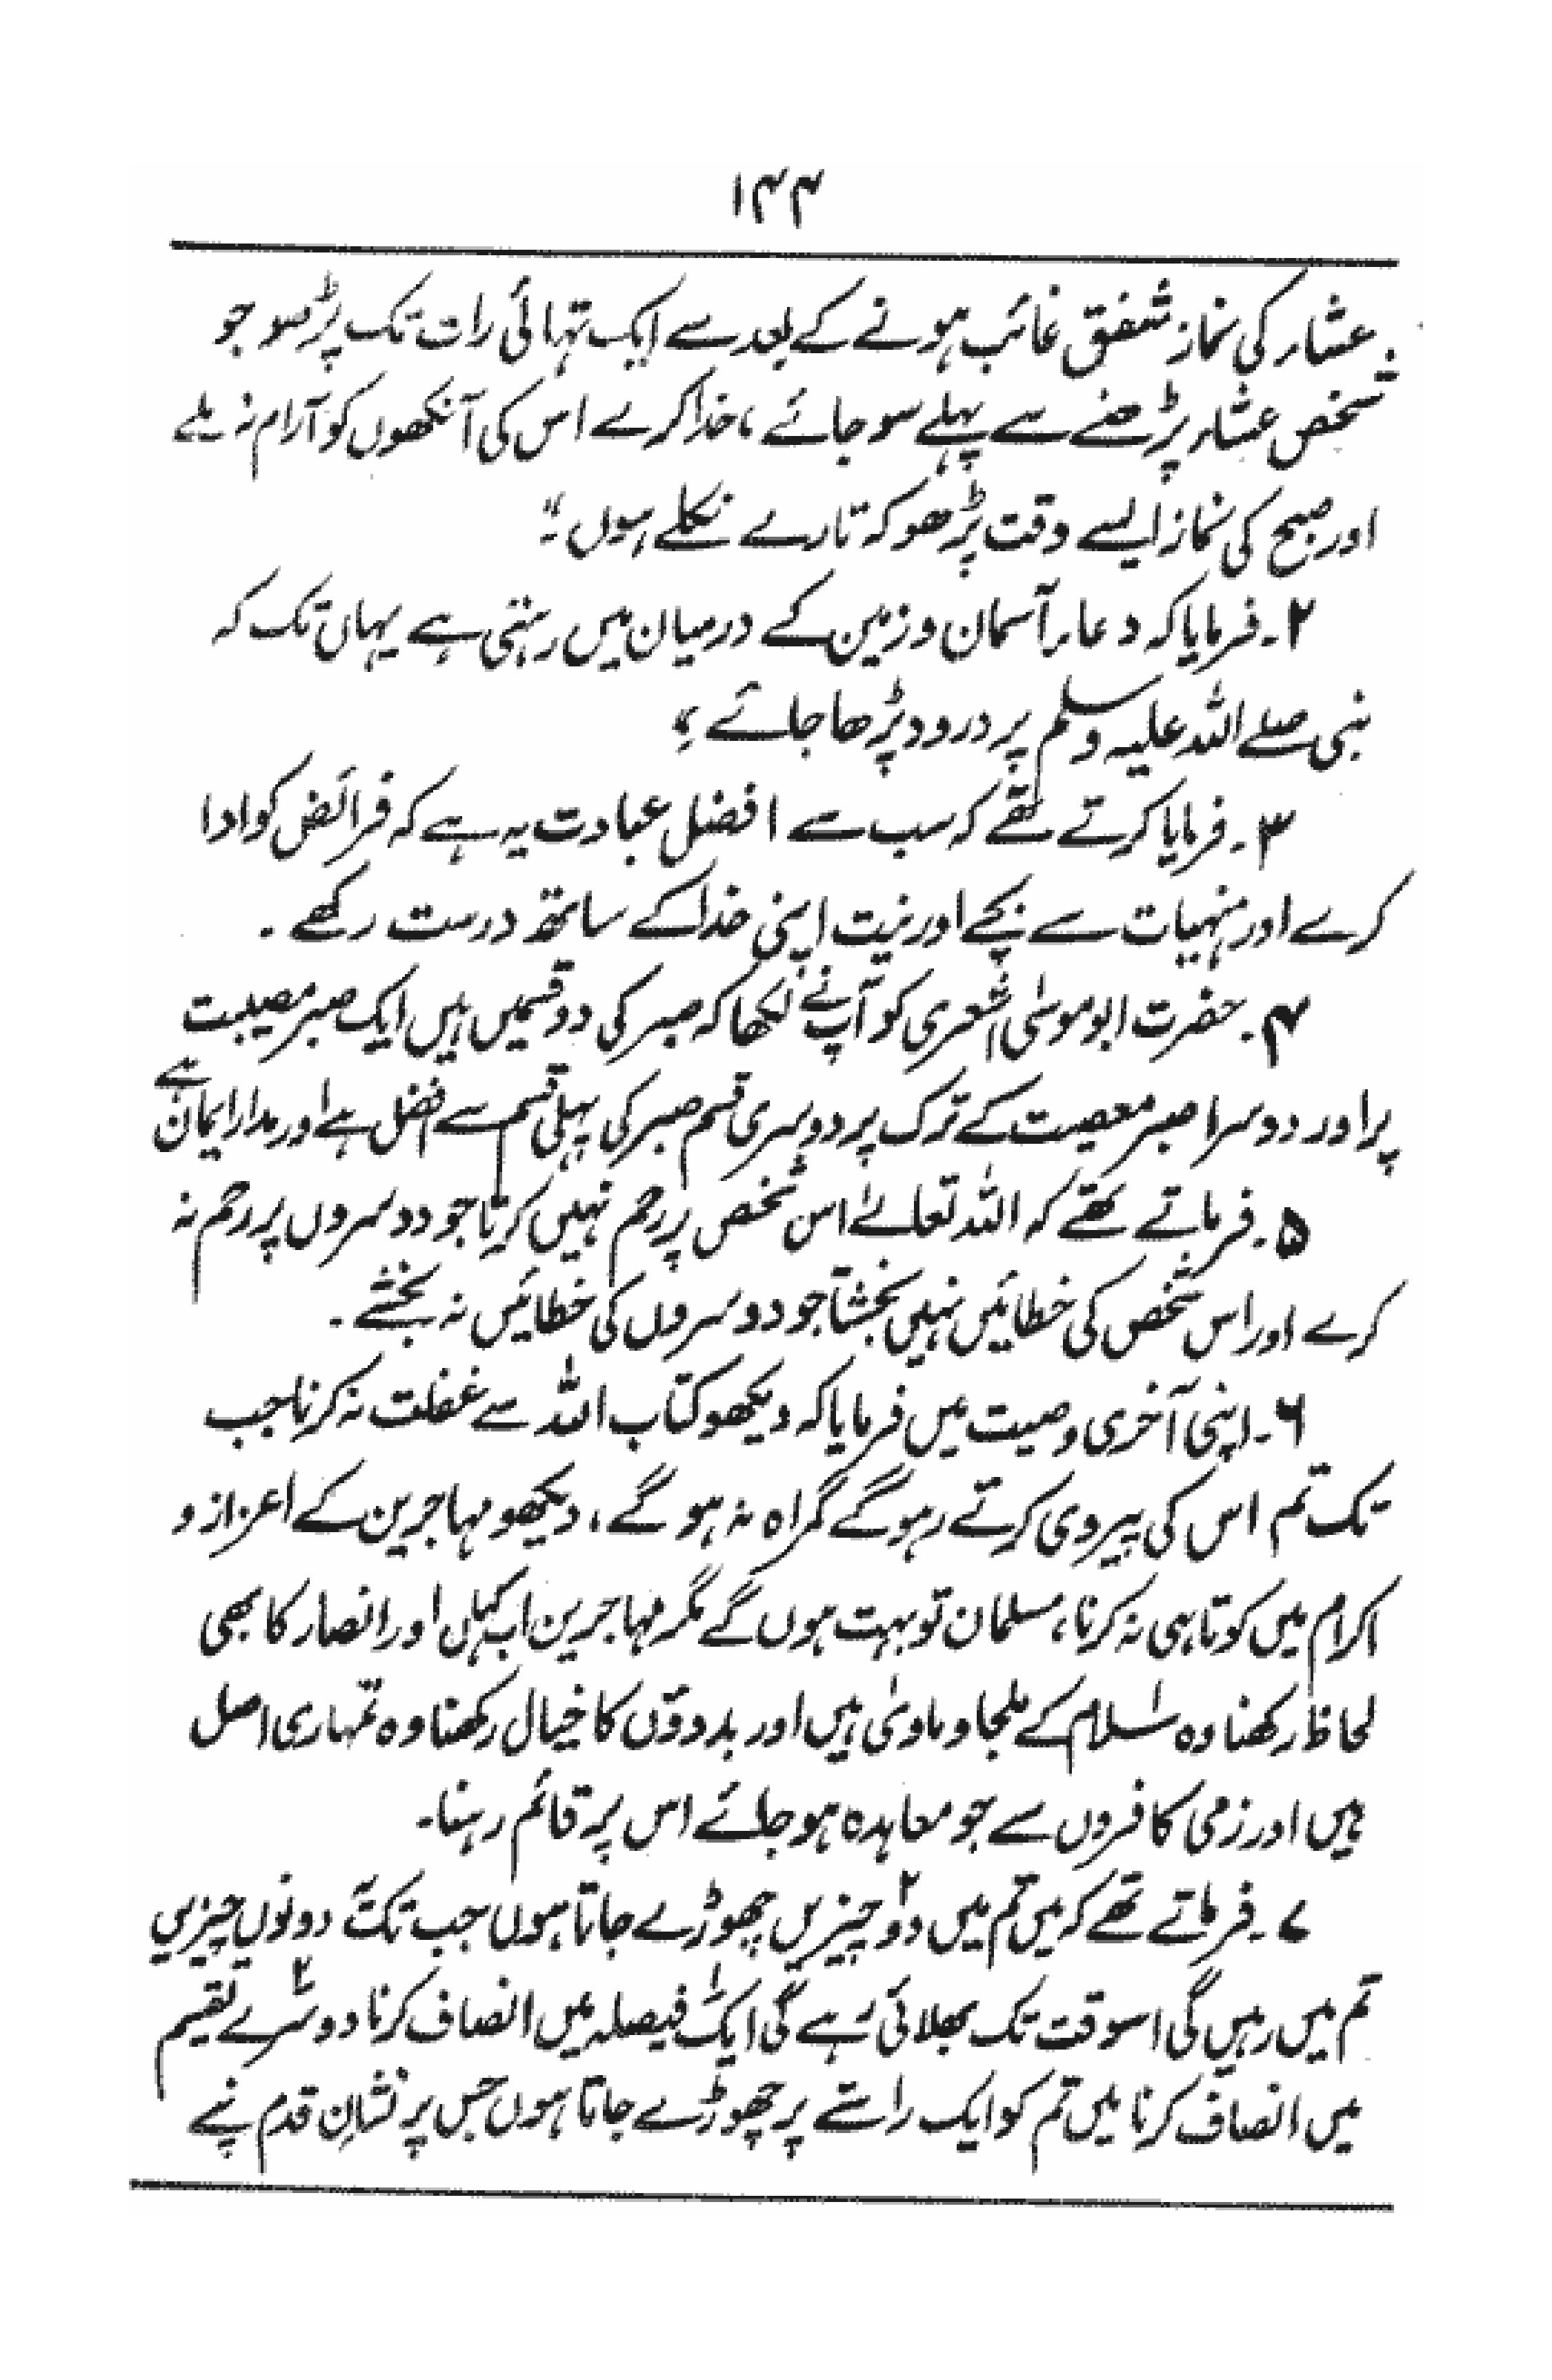 ۱۴۴
عشاء کی نماز شفق غائب ہونے کے بعد سے ایک تہائی رات تک پڑھو جو
شخص عشاء پڑھنے سے پہلے سو جائے، خدا کرے اس کی آنکھوں کو آرام نہ ملے
اور صبح کی نماز ایسے وقت پڑھو کہ تارے نکلے ہوں۔"
۲۔ فرمایا کہ دعاء آسمان و زمین کے درمیان میں رہتی ہے یہاں تک کہ
نبی صلے اللہ علیہ وسلم پر درود پڑھا جائے۔"
۳۔ فرمایا کرتے تھے کہ سب سے افضل عبادت یہ ہے کہ فرائض کو ادا
کرے اور منہیات سے بچے اور نیت اپنی خدا کے ساتھ درست رکھے۔
۴۔ حضرت ابو موسیٰ اشعری کو آپ نے لکھا کہ صبر کی دو قسمیں ہیں ایک صبر مصیبت
پر اور دوسرا صبر معصیت کے ترک پر دوسری قسم صبر کی پہلی قسم سے افضل ہے اور مدار ایمان ہے
۵۔ فرماتے تھے کہ اللہ تعالےٰ اس شخص پر رحم نہیں کرتا جو دوسروں پر رحم نہ
کرے اور اس شخص کی خطائیں نہیں بخشتا جو دوسروں کی خطائیں نہ بخشے۔
۶۔ اپنی آخری وصیت میں فرمایا کہ دیکھو کتاب اللہ سے غفلت نہ کرنا جب
تک تم اس کی پیروی کرتے رہو گے گمراہ نہ ہو گے، دیکھو مہاجرین کے اعزاز و
اکرام میں کوتاہی نہ کرنا، مسلمان تو بہت ہوں گے مگر مہاجرین اب کہاں اور انصار کا بھی
لحاظ رکھنا وہ اسلام کے ملجا و ماویٰ ہیں اور بدووّں کا خیال رکھنا وہ تمہاری اصل
ہیں اور زمی کافروں سے جو معاہدہ ہو جائے اس پر قائم رہنا۔
۷۔ فرماتے تھے کہ میں تم میں دو۲ چیزیں چھوڑے جاتا ہوں جب تک دونوں چیزیں
تم میں رہیں گی اسوقت تک بھلائی رہے گی ایک۱ فیصلہ میں انصاف کرنا دوسرے۲ تقسیم
میں انصاف کرنا میں تم کو ایک راستے پر چھوڑے جاتا ہوں جس پر نشانِ قدم پنے